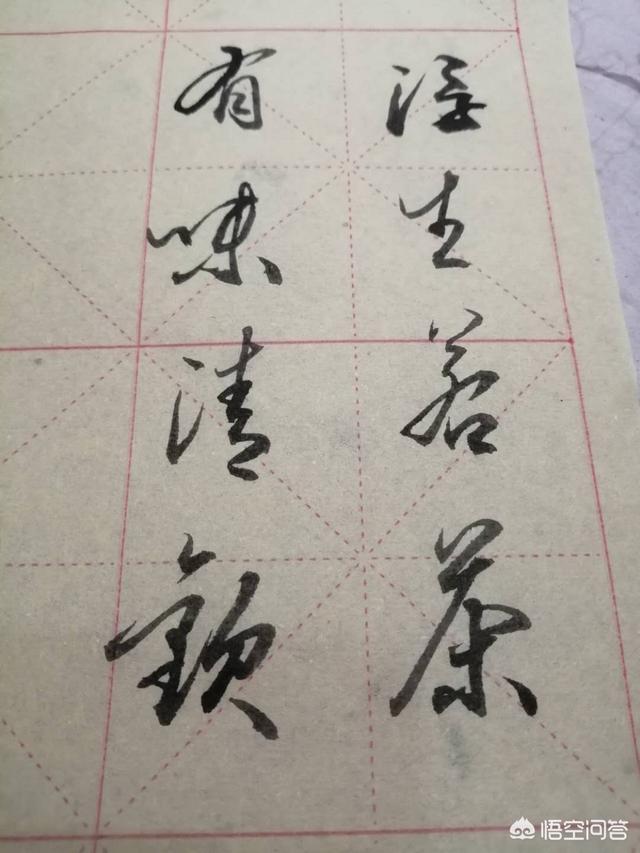 浮生若茶
有味清歡
悟空问答